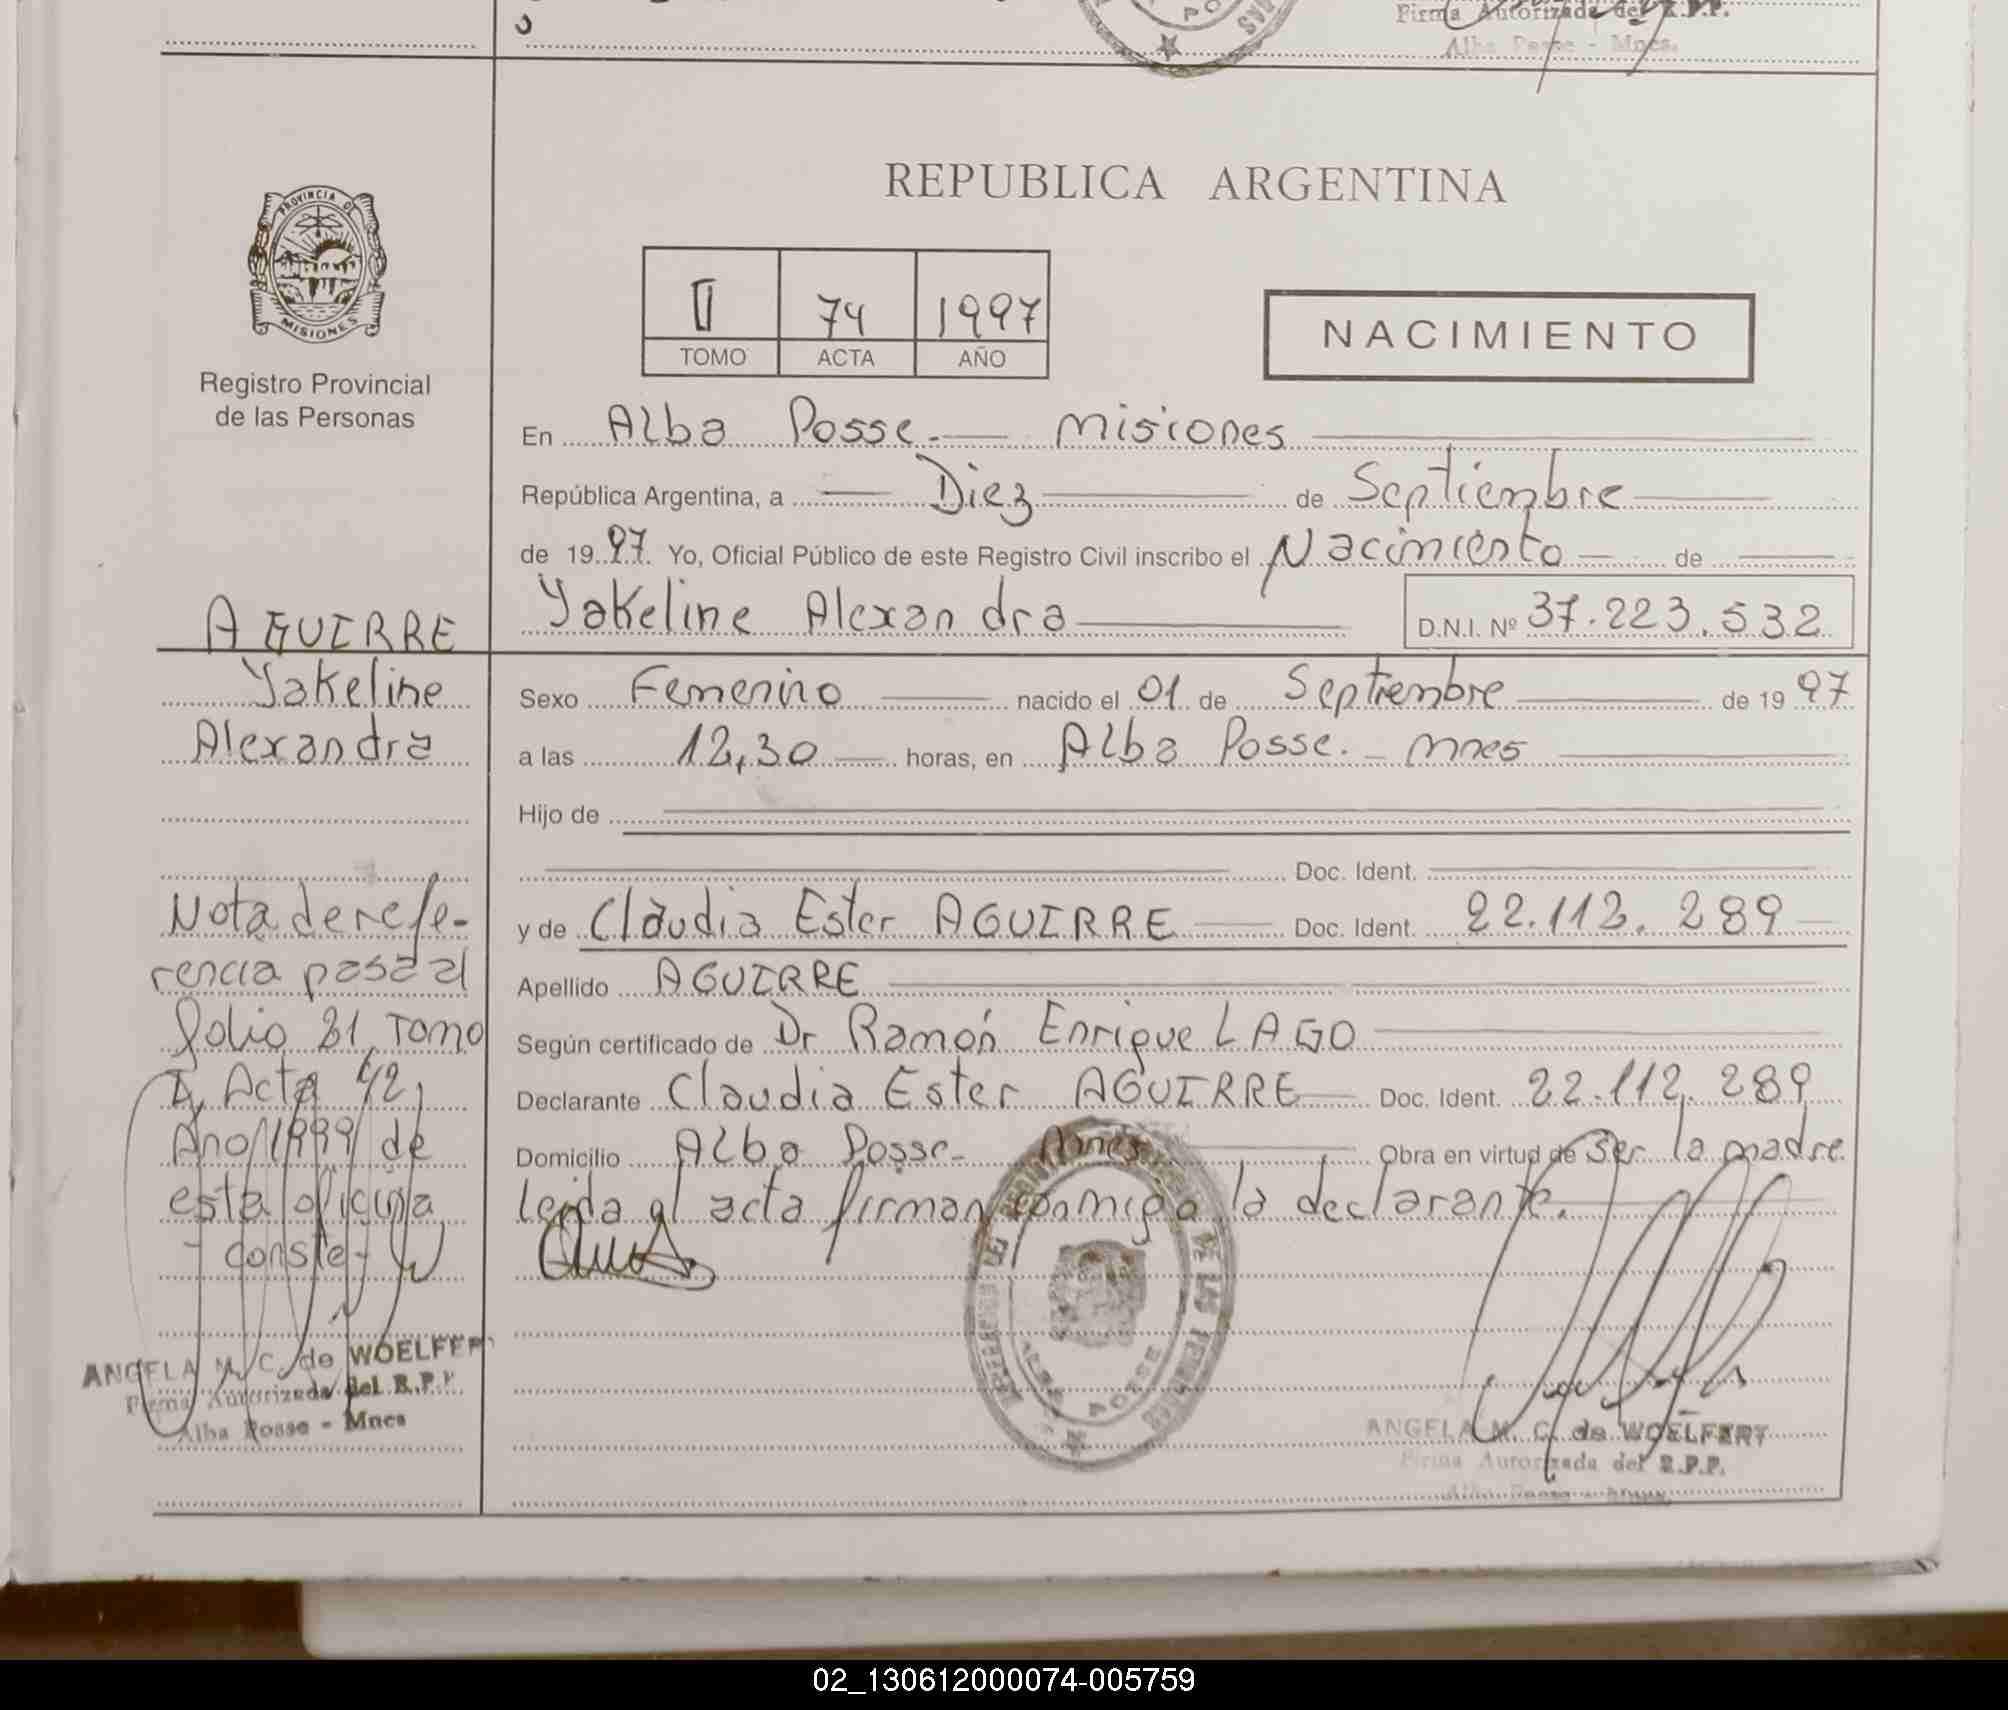 Firma Autorizada del R.P.P.
Alba Posse - Mnes.
PROVINCIA DE
MISIONES
Registro Provincial
de las Personas
REPUBLICA ARGENTINA
II 74 1997
TOMO ACTA AÑO
NACIMIENTO
En Alba Posse.- Misiones
República Argentina, a Diez de Septiembre
de 1997. Yo, Oficial Público de este Registro Civil inscribo el Nacimiento de
Yakeline Alexandra D.N.I. Nº 37.223.532
AGUIRRE
Yakeline
Alexandra
Sexo Femenino nacido el 01 de Septiembre de 1997
a las 12,30 horas, en Alba Posse. - Mnes
Hijo de
Doc. Ident.
y de Claudia Ester AGUIRRE Doc. Ident. 22.112.289
Apellido AGUIRRE
Según certificado de Dr Ramón Enrique LAGO
Declarante Claudia Ester AGUIRRE Doc. Ident. 22.112.289
Domicilio Alba Posse- Mnes Obra en virtud de ser la madre
leida el acta firman conmigo la declarante.
Nota de refe-
rencia pasa al
folio 21 Tomo
I, Acta 42,
Año 1999 de
esta oficina
- conste -
ANGELA M. C. de WOELFERT
Firma Autorizada del R.P.P.
Alba Posse - Mnes
ALBA POSSE
ANGELA M. C. de WOELFERT
Firma Autorizada del R.P.P.
Alba Posse - Mnes.
02_130612000074-005759